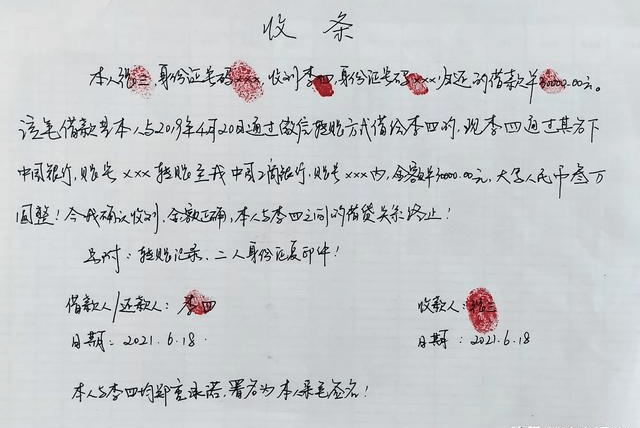 收条
本人张三,身份证号码xxx,收到李四,身份证号码xxx,归还的借款¥30000.00元。
该笔借款是本人与2019年4月20日通过微信转账方式借给李四的,现李四通过其名下
中国银行,账号xxx转账至我中国工商银行,账号xxx内,金额¥30000.00元,大写人民币叁万
圆整!今我确认收到,金额正确,本人与李四之间的借贷关系终止!
另附:转账记录、二人身份证复印件!
借款人/还款人:李四
收款人:张三
日期:2021.6.18.
日期:2021.6.18
本人与李四均郑重承诺,署名为本人亲笔签名!